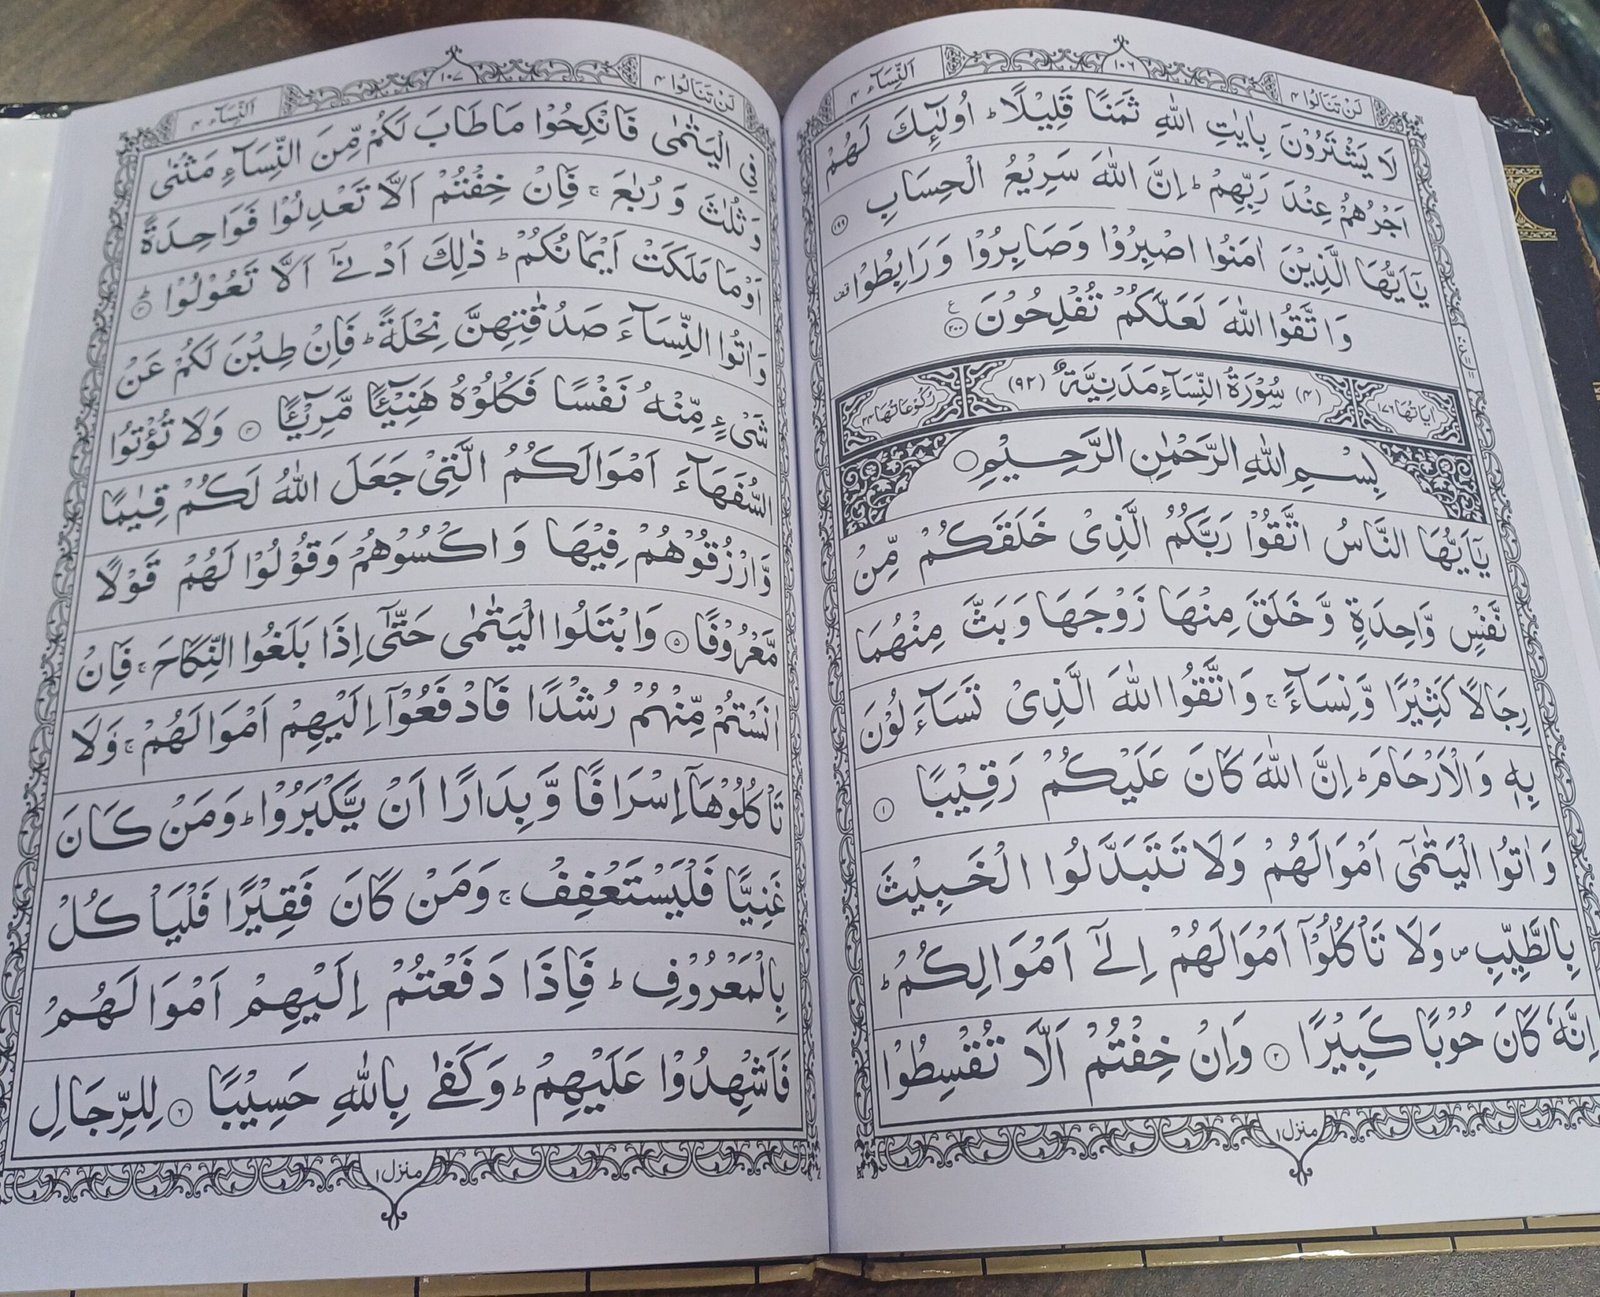 لَنْ تَنَالُوا ۴
۱۰۶
اَلنِّسَآء ۴
لَا يَشْتَرُوْنَ بِاٰيٰتِ اللّٰهِ ثَمَنًا قَلِيْلًا ؕ اُولٰٓئِكَ لَهُمْ
اَجْرُهُمْ عِنْدَ رَبِّهِمْ ؕ اِنَّ اللّٰهَ سَرِيْعُ الْحِسَابِ ۱۹۹
يٰۤاَيُّهَا الَّذِيْنَ اٰمَنُوا اصْبِرُوْا وَصَابِرُوْا وَرَابِطُوْا قف
وَاتَّقُوا اللّٰهَ لَعَلَّكُمْ تُفْلِحُوْنَ ۲۰۰ ع
اٰيَاتُهَا ۱۷۶ (۴) سُوْرَةُ النِّسَآءِ مَدَنِيَّةٌ (۹۲) رُكُوْعَاتُهَا ۲۴
بِسْمِ اللّٰهِ الرَّحْمٰنِ الرَّحِيْمِ
يٰۤاَيُّهَا النَّاسُ اتَّقُوْا رَبَّكُمُ الَّذِيْ خَلَقَكُمْ مِّنْ
نَّفْسٍ وَّاحِدَةٍ وَّخَلَقَ مِنْهَا زَوْجَهَا وَبَثَّ مِنْهُمَا
رِجَالًا كَثِيْرًا وَّنِسَآءً ۚ وَاتَّقُوا اللّٰهَ الَّذِيْ تَسَآءَلُوْنَ
بِهٖ وَالْاَرْحَامَ ؕ اِنَّ اللّٰهَ كَانَ عَلَيْكُمْ رَقِيْبًا ۱
وَاٰتُوا الْيَتٰمٰۤى اَمْوَالَهُمْ وَلَا تَتَبَدَّلُوا الْخَبِيْثَ
بِالطَّيِّبِ ۪ وَلَا تَاْكُلُوْۤا اَمْوَالَهُمْ اِلٰۤى اَمْوَالِكُمْ ؕ
اِنَّهٗ كَانَ حُوْبًا كَبِيْرًا ۲ وَاِنْ خِفْتُمْ اَلَّا تُقْسِطُوْا
منزل ۱
لَنْ تَنَالُوا ۴
۱۰۷
اَلنِّسَآء ۴
فِى الْيَتٰمٰى فَانْكِحُوْا مَا طَابَ لَكُمْ مِّنَ النِّسَآءِ مَثْنٰى
وَثُلٰثَ وَرُبٰعَ ۚ فَاِنْ خِفْتُمْ اَلَّا تَعْدِلُوْا فَوَاحِدَةً
اَوْ مَا مَلَكَتْ اَيْمَانُكُمْ ؕ ذٰلِكَ اَدْنٰۤى اَلَّا تَعُوْلُوْا ؕ ۳
وَاٰتُوا النِّسَآءَ صَدُقٰتِهِنَّ نِحْلَةً ؕ فَاِنْ طِبْنَ لَكُمْ عَنْ
شَيْءٍ مِّنْهُ نَفْسًا فَكُلُوْهُ هَنِيْٓـئًا مَّرِيْٓـئًا ۴ وَلَا تُؤْتُوا
السُّفَهَآءَ اَمْوَالَكُمُ الَّتِيْ جَعَلَ اللّٰهُ لَكُمْ قِيٰمًا
وَّارْزُقُوْهُمْ فِيْهَا وَاكْسُوْهُمْ وَقُوْلُوْا لَهُمْ قَوْلًا
مَّعْرُوْفًا ۵ وَابْتَلُوا الْيَتٰمٰى حَتّٰۤى اِذَا بَلَغُوا النِّكَاحَ ۚ فَاِنْ
اٰنَسْتُمْ مِّنْهُمْ رُشْدًا فَادْفَعُوْۤا اِلَيْهِمْ اَمْوَالَهُمْ ۚ وَلَا
تَاْكُلُوْهَاۤ اِسْرَافًا وَّبِدَارًا اَنْ يَّكْبَرُوْا ؕ وَمَنْ كَانَ
غَنِيًّا فَلْيَسْتَعْفِفْ ۚ وَمَنْ كَانَ فَقِيْرًا فَلْيَاْكُلْ
بِالْمَعْرُوْفِ ؕ فَاِذَا دَفَعْتُمْ اِلَيْهِمْ اَمْوَالَهُمْ
فَاَشْهِدُوْا عَلَيْهِمْ ؕ وَكَفٰى بِاللّٰهِ حَسِيْبًا ۶ لِلرِّجَالِ
منزل ۱